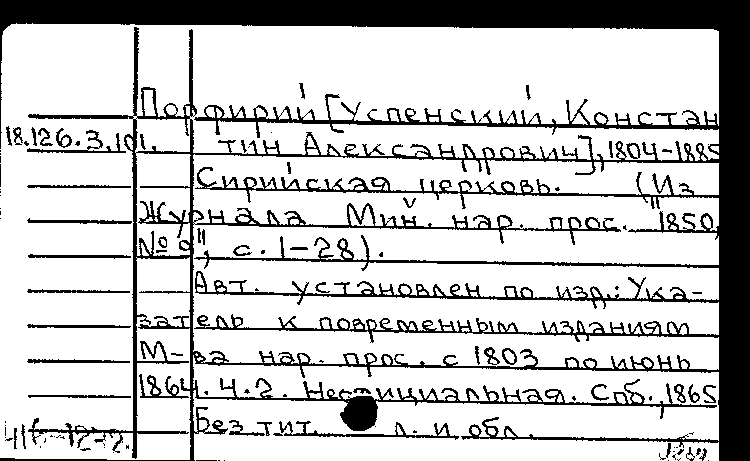 Порфирий [Успенский, Констан
18.126.3.101. тин Александрович], 1804-1885
Сирийская церковь. (Из
Журнала Мин. нар. прос. "1850,
№ 9", с. 1-28).
Авт. установлен по изд.: Ука-
затель к повременным изданиям
М-ва нар. прос. с 1803 по июнь
1864. Ч.2. Неофициальная. Спб., 1865
Без тит. л. и обл.